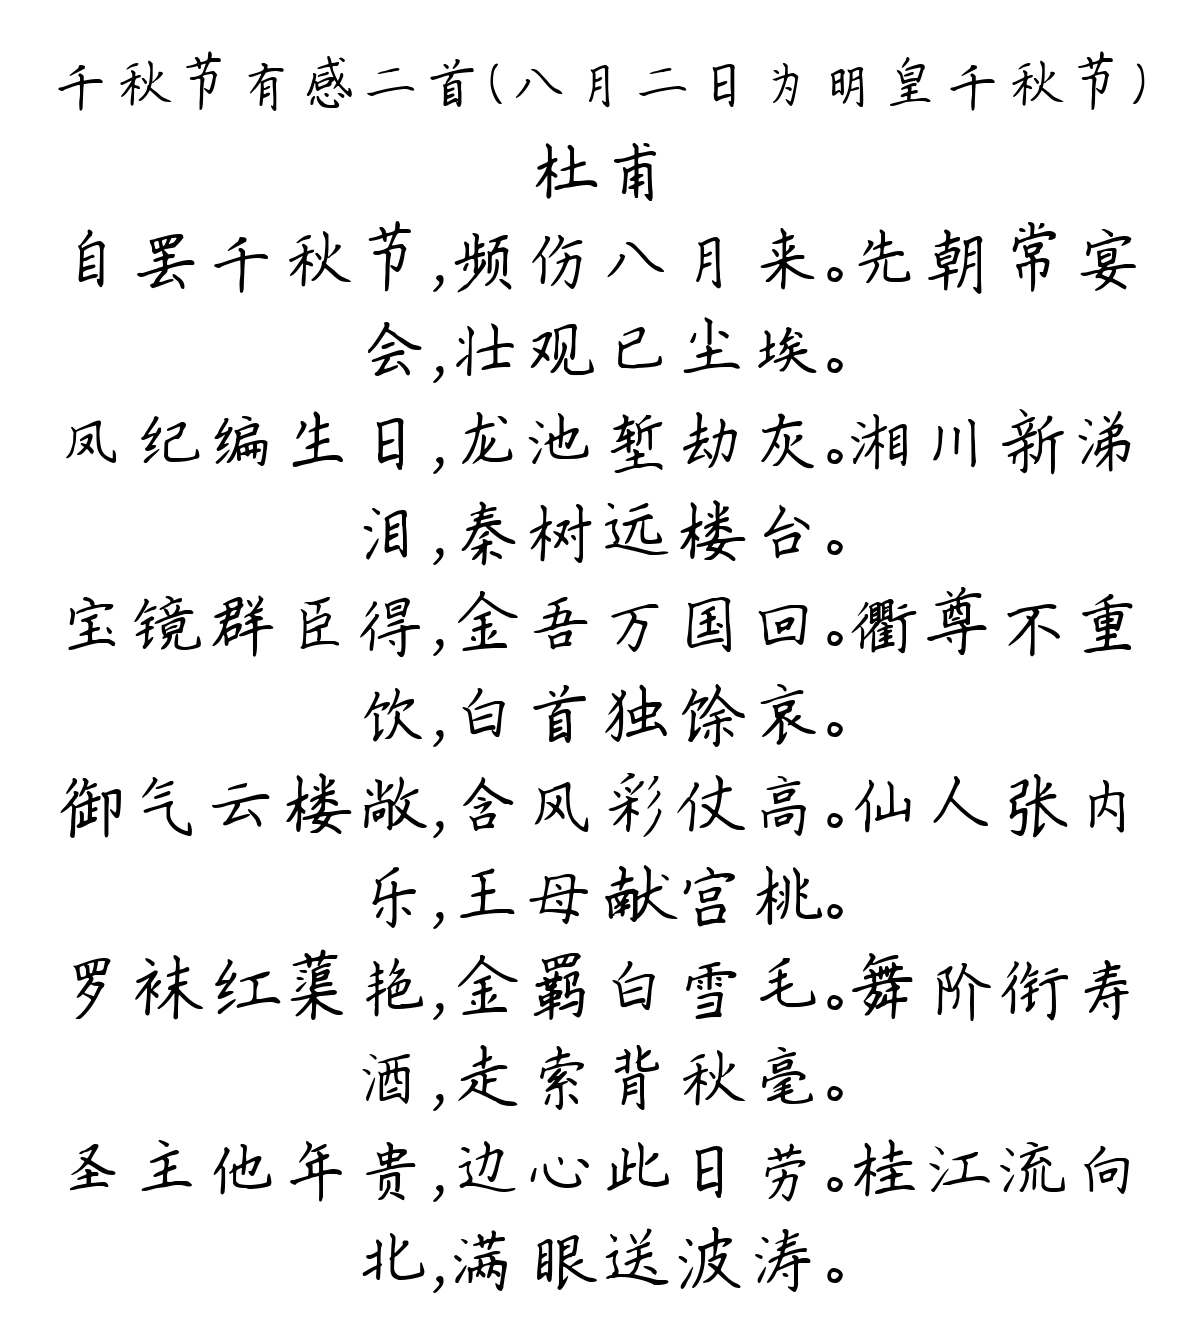 千秋节有感二首(八月二日为明皇千秋节)
杜甫
自罢千秋节,频伤八月来。先朝常宴
会,壮观已尘埃。
凤纪编生日,龙池堑劫灰。湘川新涕
泪,秦树远楼台。
宝镜群臣得,金吾万国回。衢尊不重
饮,白首独馀哀。
御气云楼敞,含风彩仗高。仙人张内
乐,王母献宫桃。
罗袜红蕖艳,金羁白雪毛。舞阶衔寿
酒,走索背秋毫。
圣主他年贵,边心此日劳。桂江流向
北,满眼送波涛。